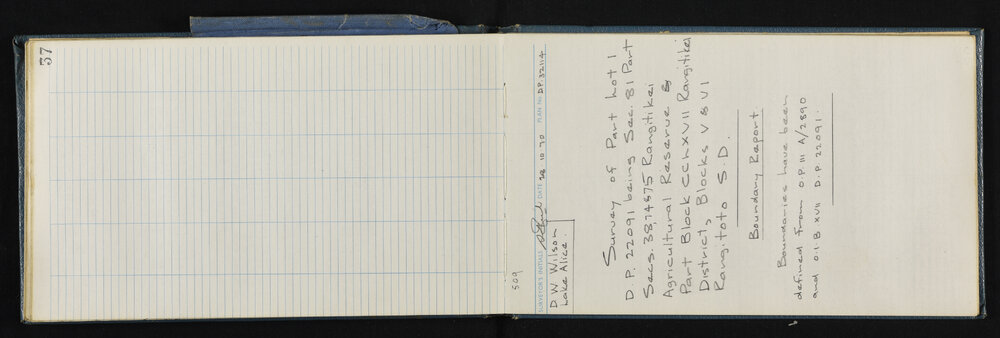 37
509
SURVEYOR'S INITIALS DATE 28.10.70 PLAN No DP 32114
D W Wilson
Lake Alice.
Survey of Part Lot 1
D.P. 22091 being Sec. 81 Part
Secs. 38, 74 & 75 Rangitikei
Agricultural Reserve &
Part Block CCLXVII Rangitikei
District, Blocks V & VI
Rangitoto S.D.
Boundary Report.
Boundaries have been
defined from O.P. III A/2890
and O.I.B XVII D.P. 22091.